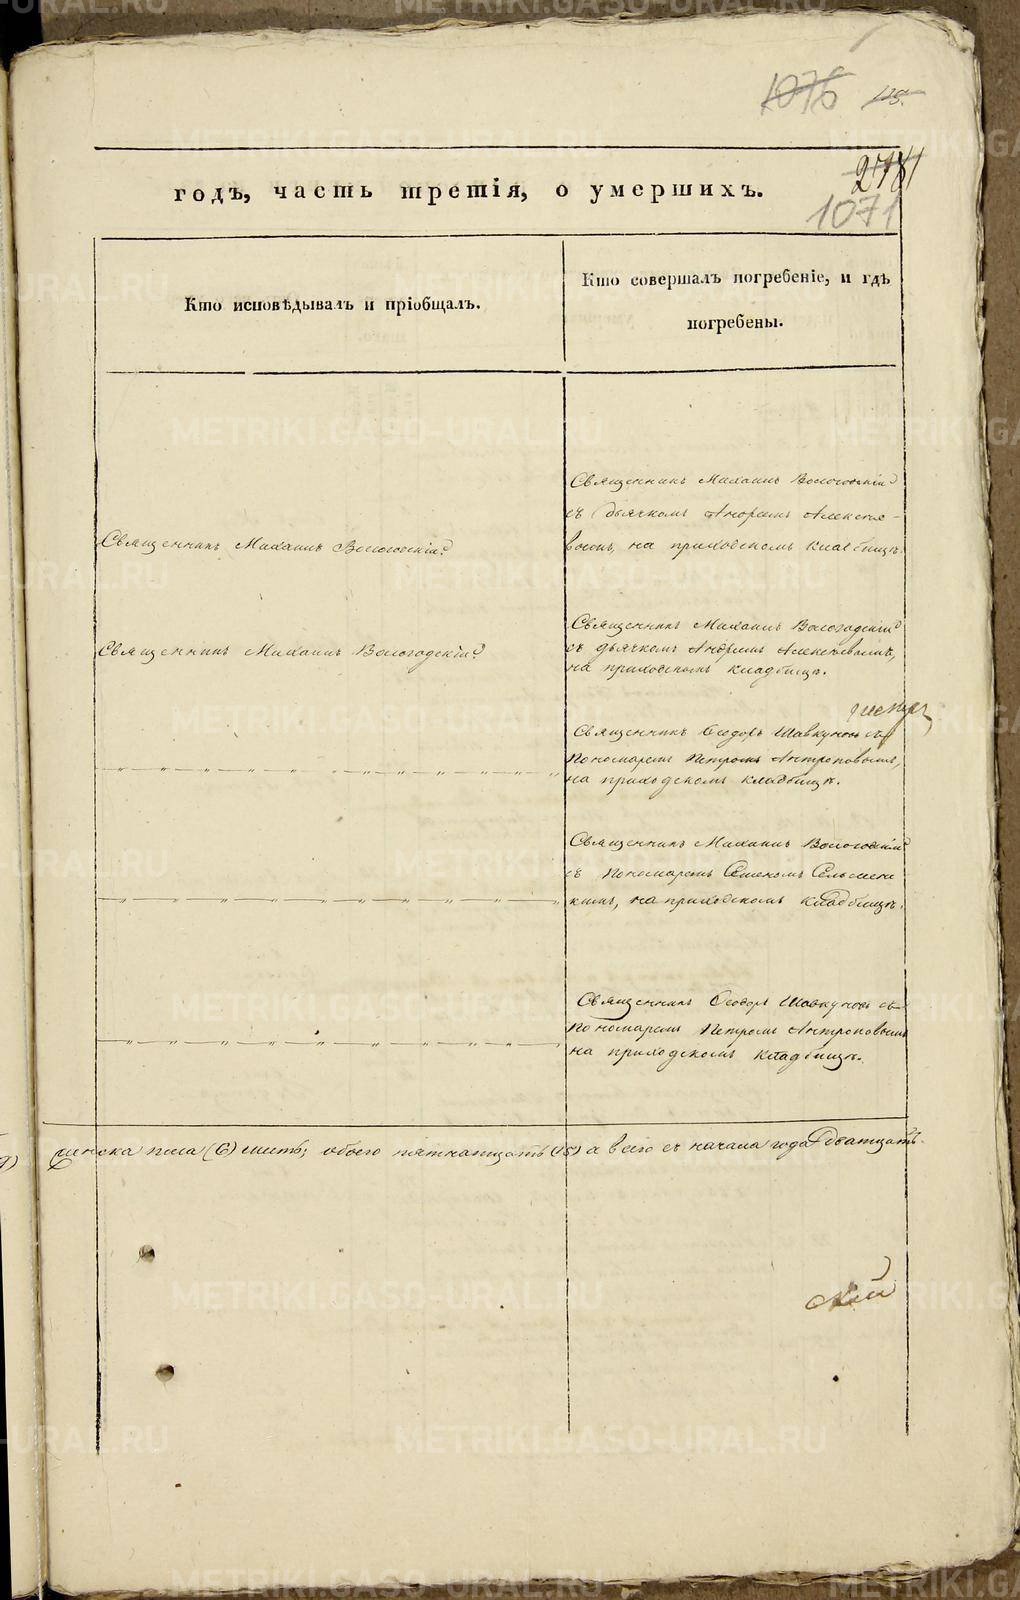 1076 175.
годъ, часть третія, о умершихъ.
1071
Кто исповѣдывалъ и пріобщалъ.
Кто совершалъ погребеніе, и гдѣ
погребены.
Священникъ Михаилъ Вологодскій
съ дьячкомъ Андреемъ Алексѣе-
вымъ, на приходскомъ кладбищѣ.
Священникъ Михаилъ Вологодскій
Священникъ Михаилъ Вологодскій
съ дьячкомъ Андреемъ Алексѣевымъ,
на приходскомъ кладбищѣ.
Священникъ Михаилъ Вологодскій
Священникъ Ѳеодоръ Шавкуновъ съ
Пономаремъ Петромъ Антроповымъ,
на приходскомъ кладбищѣ.
Священникъ Михаилъ Вологодскій
съ Пономаремъ
на приходскомъ кладбищѣ.
Священникъ Ѳеодоръ Шавкуновъ съ
Пономаремъ Петромъ Антроповымъ
на приходскомъ кладбищѣ.
женска пола (6) шесть; обоего пятнатцать (15) а всего съ начала года дватцать
скій
METRIKI.GASO-URAL.RU